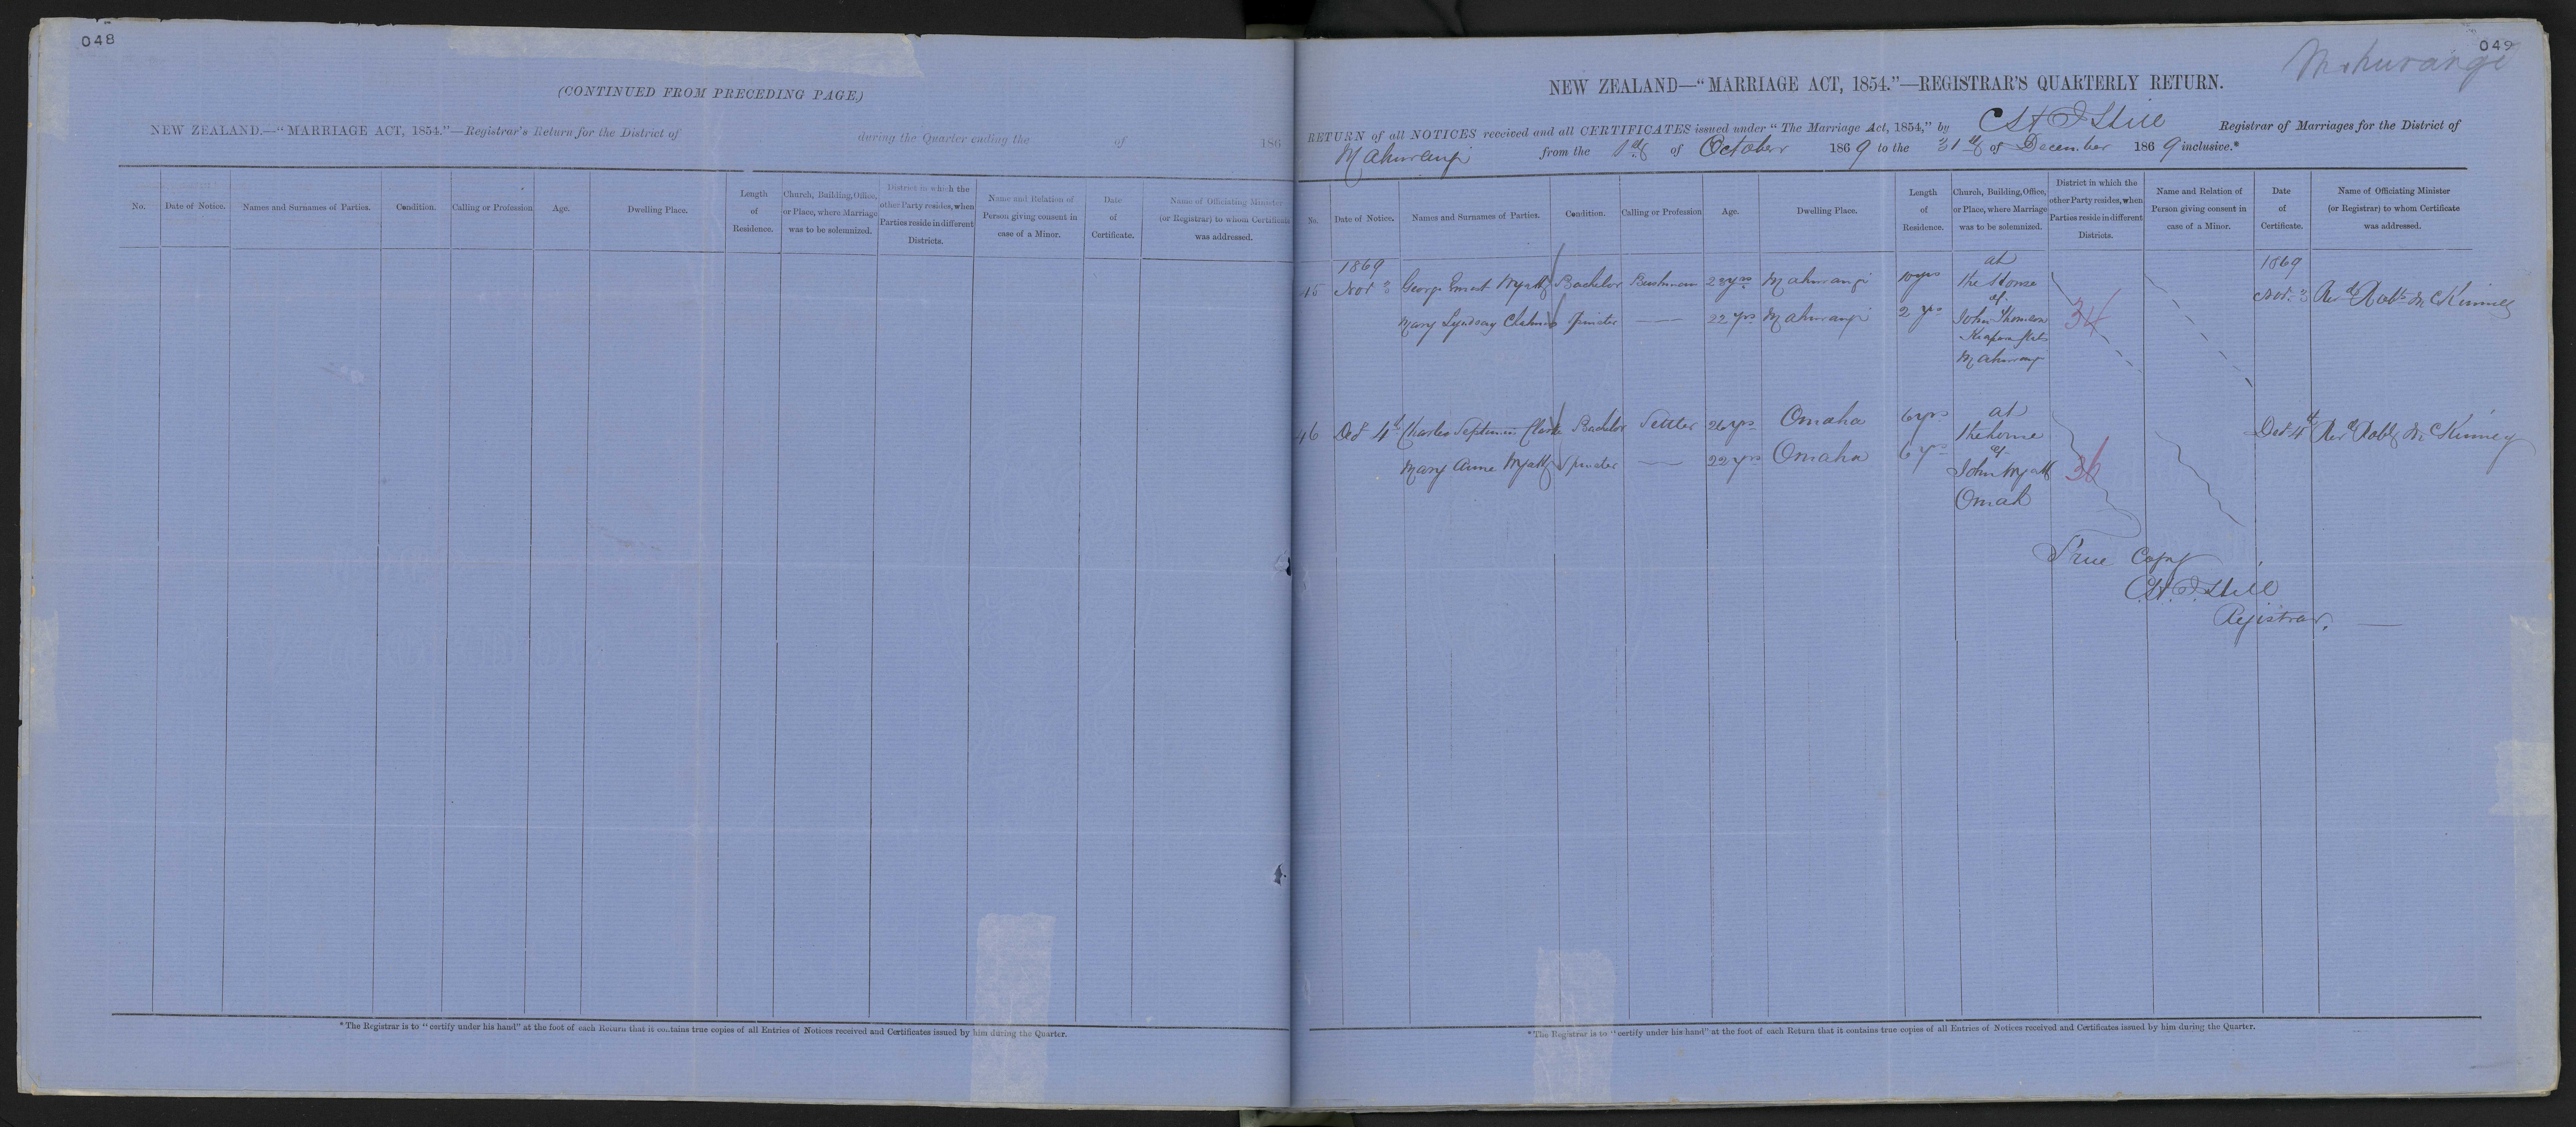 048
(CONTINUED FROM PRECEDING PAGE.)
NEW ZEALAND.—"MARRIAGE ACT, 1854."—Registrar's Return for the District of during the Quarter ending the of 186
No. Date of Notice. Names and Surnames of Parties. Condition. Calling or Profession Age. Dwelling Place. Length of Residence. Church, Building, Office, or Place, where Marriage was to be solemnized. District in which the other Party resides, when Parties reside in different Districts. Name and Relation of Person giving consent in case of a Minor. Date of Certificate. Name of Officiating Minister (or Registrar) to whom Certificate was addressed.
*The Registrar is to "certify under his hand" at the foot of each Return that it contains true copies of all Entries of Notices received and Certificates issued by him during the Quarter.
049
Mahurangi
NEW ZEALAND—"MARRIAGE ACT, 1854."—REGISTRAR'S QUARTERLY RETURN.
RETURN of all NOTICES received and all CERTIFICATES issued under "The Marriage Act, 1854," by Registrar of Marriages for the District of
Mahurangi from the 1st of October 1869 to the 31st of December 1869 inclusive.*
No. Date of Notice. Names and Surnames of Parties. Condition. Calling or Profession Age. Dwelling Place. Length of Residence. Church, Building, Office, or Place, where Marriage was to be solemnized. District in which the other Party resides, when Parties reside in different Districts. Name and Relation of Person giving consent in case of a Minor. Date of Certificate. Name of Officiating Minister (or Registrar) to whom Certificate was addressed.
1869 at 1869
15 Nov 3 George Ernest Wyatt Bachelor Bushman 28 yrs Mahurangi 10 yrs the House Nov. 3 Revd Robt McKinney
of
Mary Lyndsay Chalmers Spinster 22 yrs Mahurangi 2 yrs John Thomson 34
Kaipara flats
Mahurangi
16 Decr 4th Charles Septimus Clarke Bachelor Settler 26 yrs Omaha 6 yrs at Decr 4th Revd Robt McKinney
the home
of
Mary Anne Wyatt Spinster 22 yrs Omaha 6 yrs John Wyatt 36
Omah
True Copy
Registrar.
*The Registrar is to "certify under his hand" at the foot of each Return that it contains true copies of all Entries of Notices received and Certificates issued by him during the Quarter.